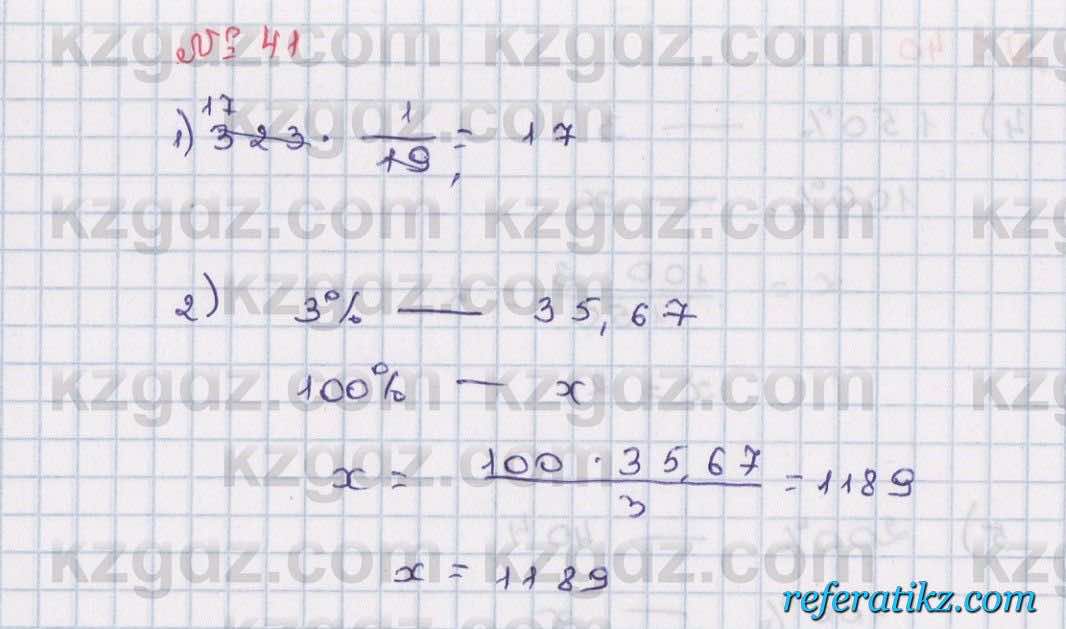 № 41
1) 323 · 1/19 = 17
17
2) 3% — 35,67
100% — x
x = 100 · 35,67 / 3 = 1189
x = 1189
kzgdz.com
referatikz.com